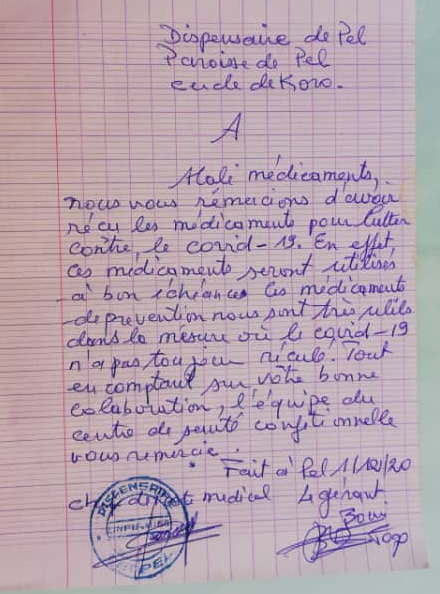 Dispensaire de Pel
Paroisse de Pel
cercle de Koro.
A
Mali médicaments,
nous vous rémercions d'avoir
réçu les médicaments pour lutter
contre, le covid-19. En effet,
ces médicaments seront utilisés
à bon échéances ces médicaments
de prevention nous sont très utils
dans la mésure où le covid-19
n'a pas toujour réculé. Tout
en comptant sur vôtre bonne
colaboration, l'équipe du
centre de santé confetionnelle
vous remercie.
Fait à Pel 1/12/20
medical Lgérant
DISPENSAIRE
DE PEL
Togo